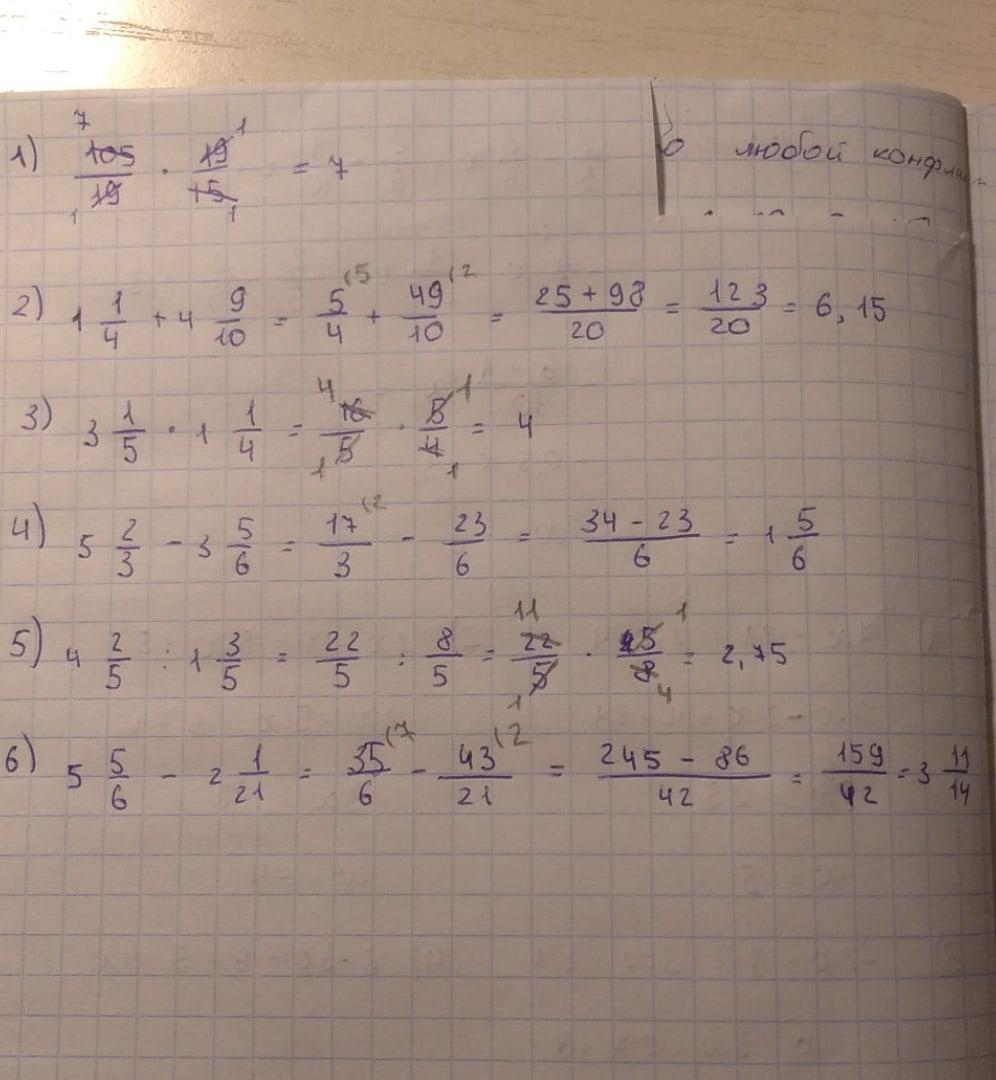 1) 105/19 · 19/15 = 7
о любой конфли
2) 1 1/4 + 4 9/10 = 5/4 (5 + 49/10 (2 = 25 + 98/20 = 123/20 = 6,15
3) 3 1/5 · 1 1/4 = 16/5 · 5/4 = 4
4) 5 2/3 - 3 5/6 = 17/3 (2 - 23/6 = 34 - 23/6 = 1 5/6
5) 4 2/5 : 1 3/5 = 22/5 : 8/5 = 22/5 · 5/8 = 2,75
6) 5 5/6 - 2 1/21 = 35/6 (7 - 43/21 (2 = 245 - 86/42 = 159/42 = 3 11/14